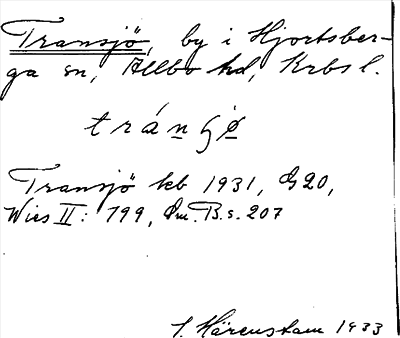 Transjö, by i Hjortsber-
ga sn, Allbo hd, Krbs l.
tránʃø
Transjö kb 1931, G20,
Wies II: 799, Öm. B. s. 207
S. Härenstam 1933